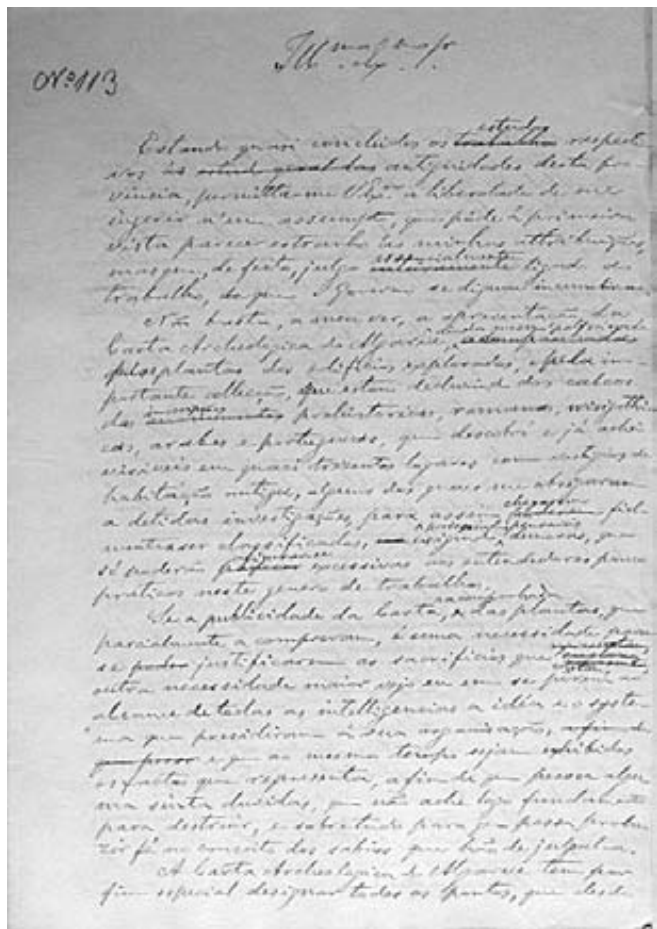 Nº 113
Ill.mo Ex.mo Sr.
estudos
Estando quasi concluidos os trabalhos respect
ivos ás estudo geral das antiguidades desta pro
vincia, permitta-me V Ex.ª a liberdade de me
ingerir n'um assumpto, que póde á primeira
vista parecer estranho ás minhas attribuições,
mas que, de feito, julgo
essencialmente
inteiramente ligado ao
trabalho, de que o Governo se dignou incumbir-me.
Não basta, a meu ver, a apresentação da
Carta Archeologica do Algarve,
plantas dos edificios explorados,
portante collecção, que estou deduzindo dos
das prehistoricas, romanas, wisigothi
cas, arabes e portuguezas, que descobri e já
em quasi trezentos logares com vestigios de
habitação antiga, alguns dos quaes me obrigaram
a detidas investigações, para assim
chegarem
fiel
mente a ser classificadas, exigindo demoras, que
só poderão
excessivas aos entendedores pouco
praticos neste genero de trabalhos.
Se a publicidade da Carta, e das plantas, que
parcialmente a comprovam, é uma necessidade para
se poder justificarem os sacrificios que
outra necessidade maior vejo eu em se pôrem ao
alcance de todas as intelligencias a idéa e o syste
ma que presidiram á sua organisação, a fim de
que possa e que ao mesmo tempo sejam exhibidos
os factos que representa, a fim de que pessoa algu
ma sinta duvidas, que não ache logo fundamento
para destruir, e sobretudo para que possa produ
zir fé no conceito dos sabios que hão de julgal-a.
A Carta Archeologica do Algarve tem por
fim especial designar todos os pontos, que desde